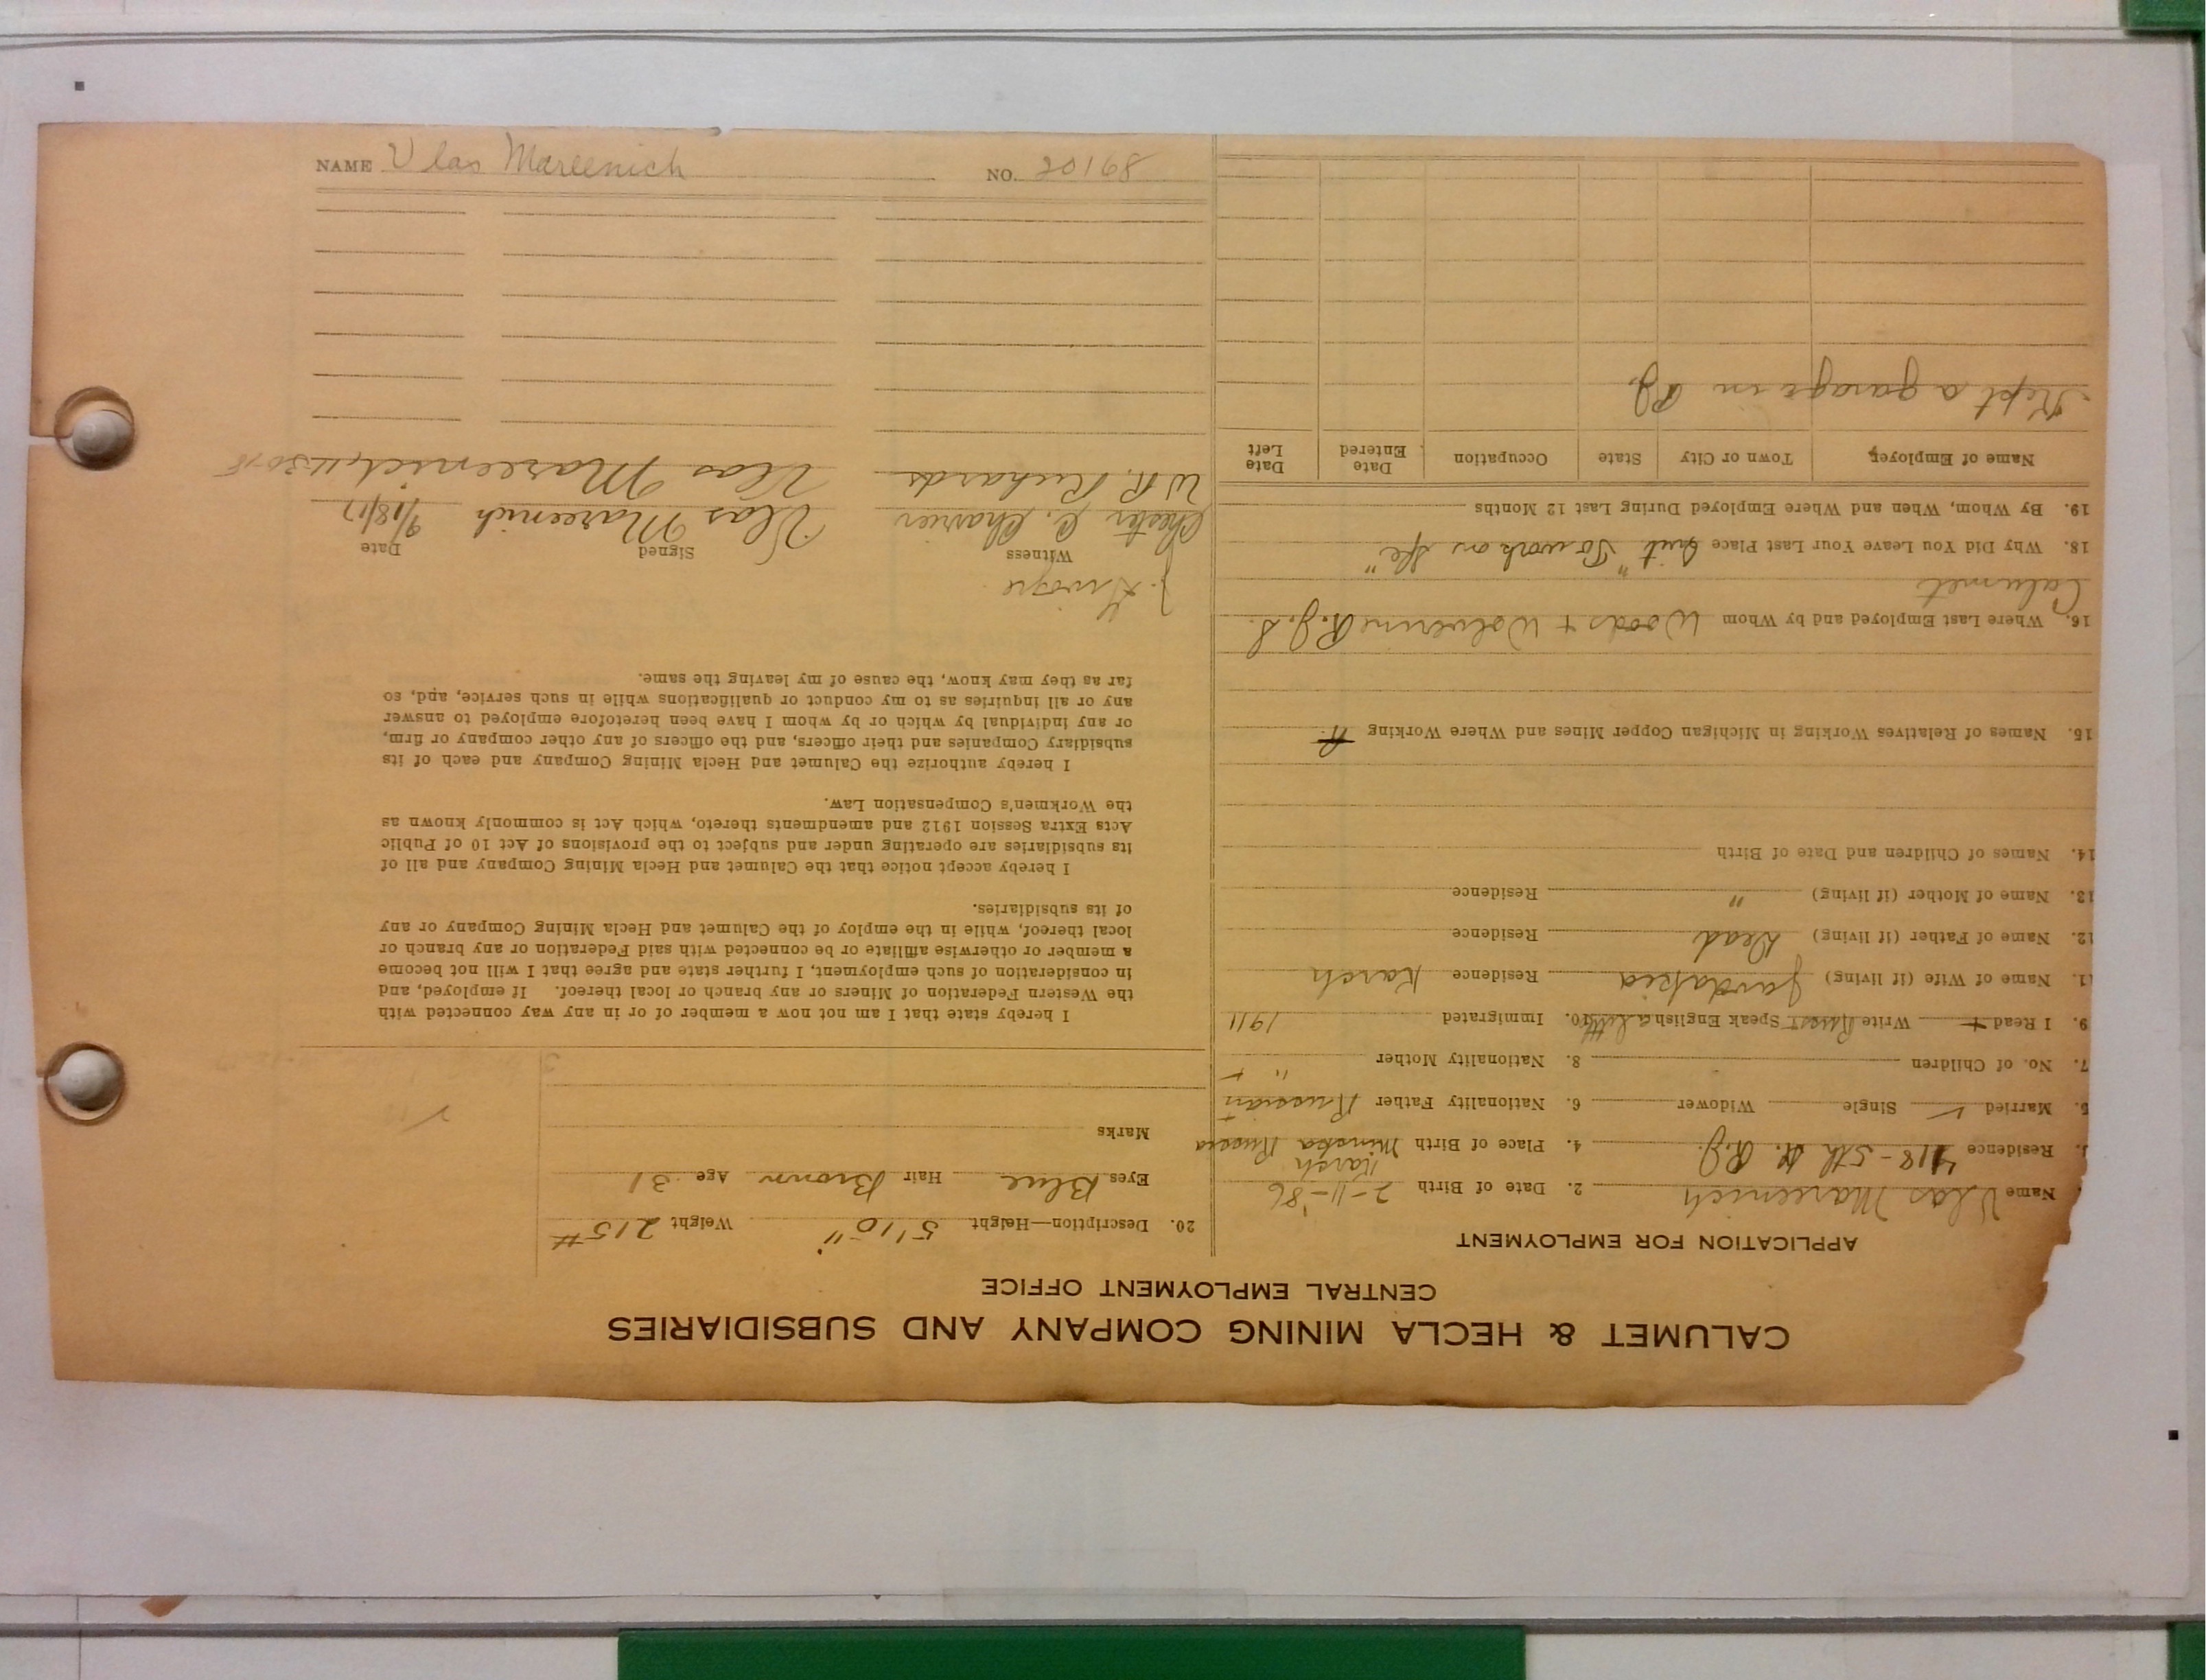 CALUMET & HECLA MINING COMPANY AND SUBSIDIARIES
CENTRAL EMPLOYMENT OFFICE
APPLICATION FOR EMPLOYMENT
Name Vlas Mareenich 2. Date of Birth 2-11-'86
Residence 418-5th St. R.J. 4. Place of Birth Karch Minska Russia
5. Married ✓ Single Widower 6. Nationality Father Russian
7. No. of Children 8. Nationality Mother " +
9. I Read + Write Russ + Speak English a little 10. Immigrated 1911
11. Name of Wife (if living) Residence Karch
12. Name of Father (if living) Dead Residence
13. Name of Mother (if living) " Residence
14. Names of Children and Date of Birth
15. Names of Relatives Working in Michigan Copper Mines and Where Working
16. Where Last Employed and by Whom Woods + Wolverine R.J.S.
Calumet
18. Why Did You Leave Your Last Place Quit "To work on sfe"
19. By Whom, When and Where Employed During Last 12 Months
Name of Employer Town or City State Occupation Date Entered Date Left
Kept a garage in R.J.
20. Description—Height 5'10" Weight 215#
Eyes Blue Hair Brown Age 31
Marks
I hereby state that I am not now a member of or in any way connected with
the Western Federation of Miners or any branch or local thereof. If employed, and
in consideration of such employment, I further state and agree that I will not become
a member or otherwise affiliate or be connected with said Federation or any branch or
local thereof, while in the employ of the Calumet and Hecla Mining Company or any
of its subsidiaries.
I hereby accept notice that the Calumet and Hecla Mining Company and all of
its subsidiaries are operating under and subject to the provisions of Act 10 of Public
Acts Extra Session 1912 and amendments thereto, which Act is commonly known as
the Workmen's Compensation Law.
I hereby authorize the Calumet and Hecla Mining Company and each of its
subsidiary Companies and their officers, and the officers of any other company or firm,
or any individual by which or by whom I have been heretofore employed to answer
any or all inquiries as to my conduct or qualifications while in such service, and, so
far as they may know, the cause of my leaving the same.
Witness Signed Date
Chester C. Charier Vlas Mareenich 9/18/17
W.R. Richards Vlas Mareenich 11-30-18
NAME Vlas Mareenich NO. 20168